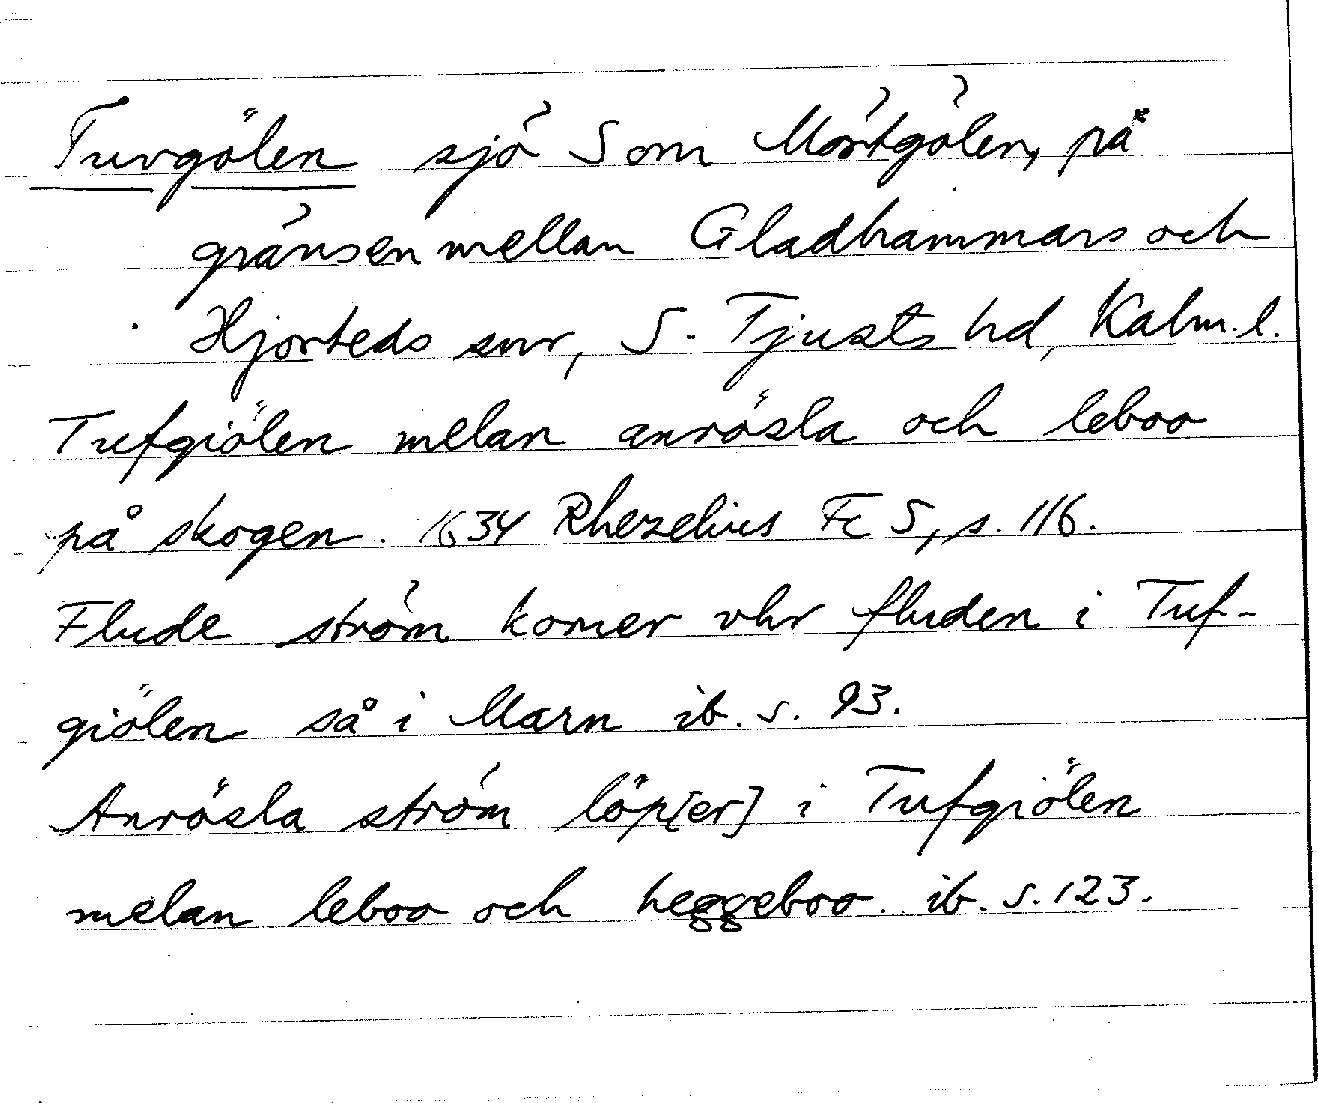 Tuvgölen sjö S om Mörtgölen, på
gränsen mellan Gladhammars och
Hjorteds snr, S. Tjusts hd, Kalm. l.
Tufgiölen melan anrösla och leboo
på skogen. 1634 Rhezelius Fc 5, s. 116.
Flude ström komer vhr fluden i Tuf-
giölen så i Marn ib. s. 93.
Anrösla ström löp[er] i Tufgiölen
melan leboo och heggeboo. ib. s. 123.